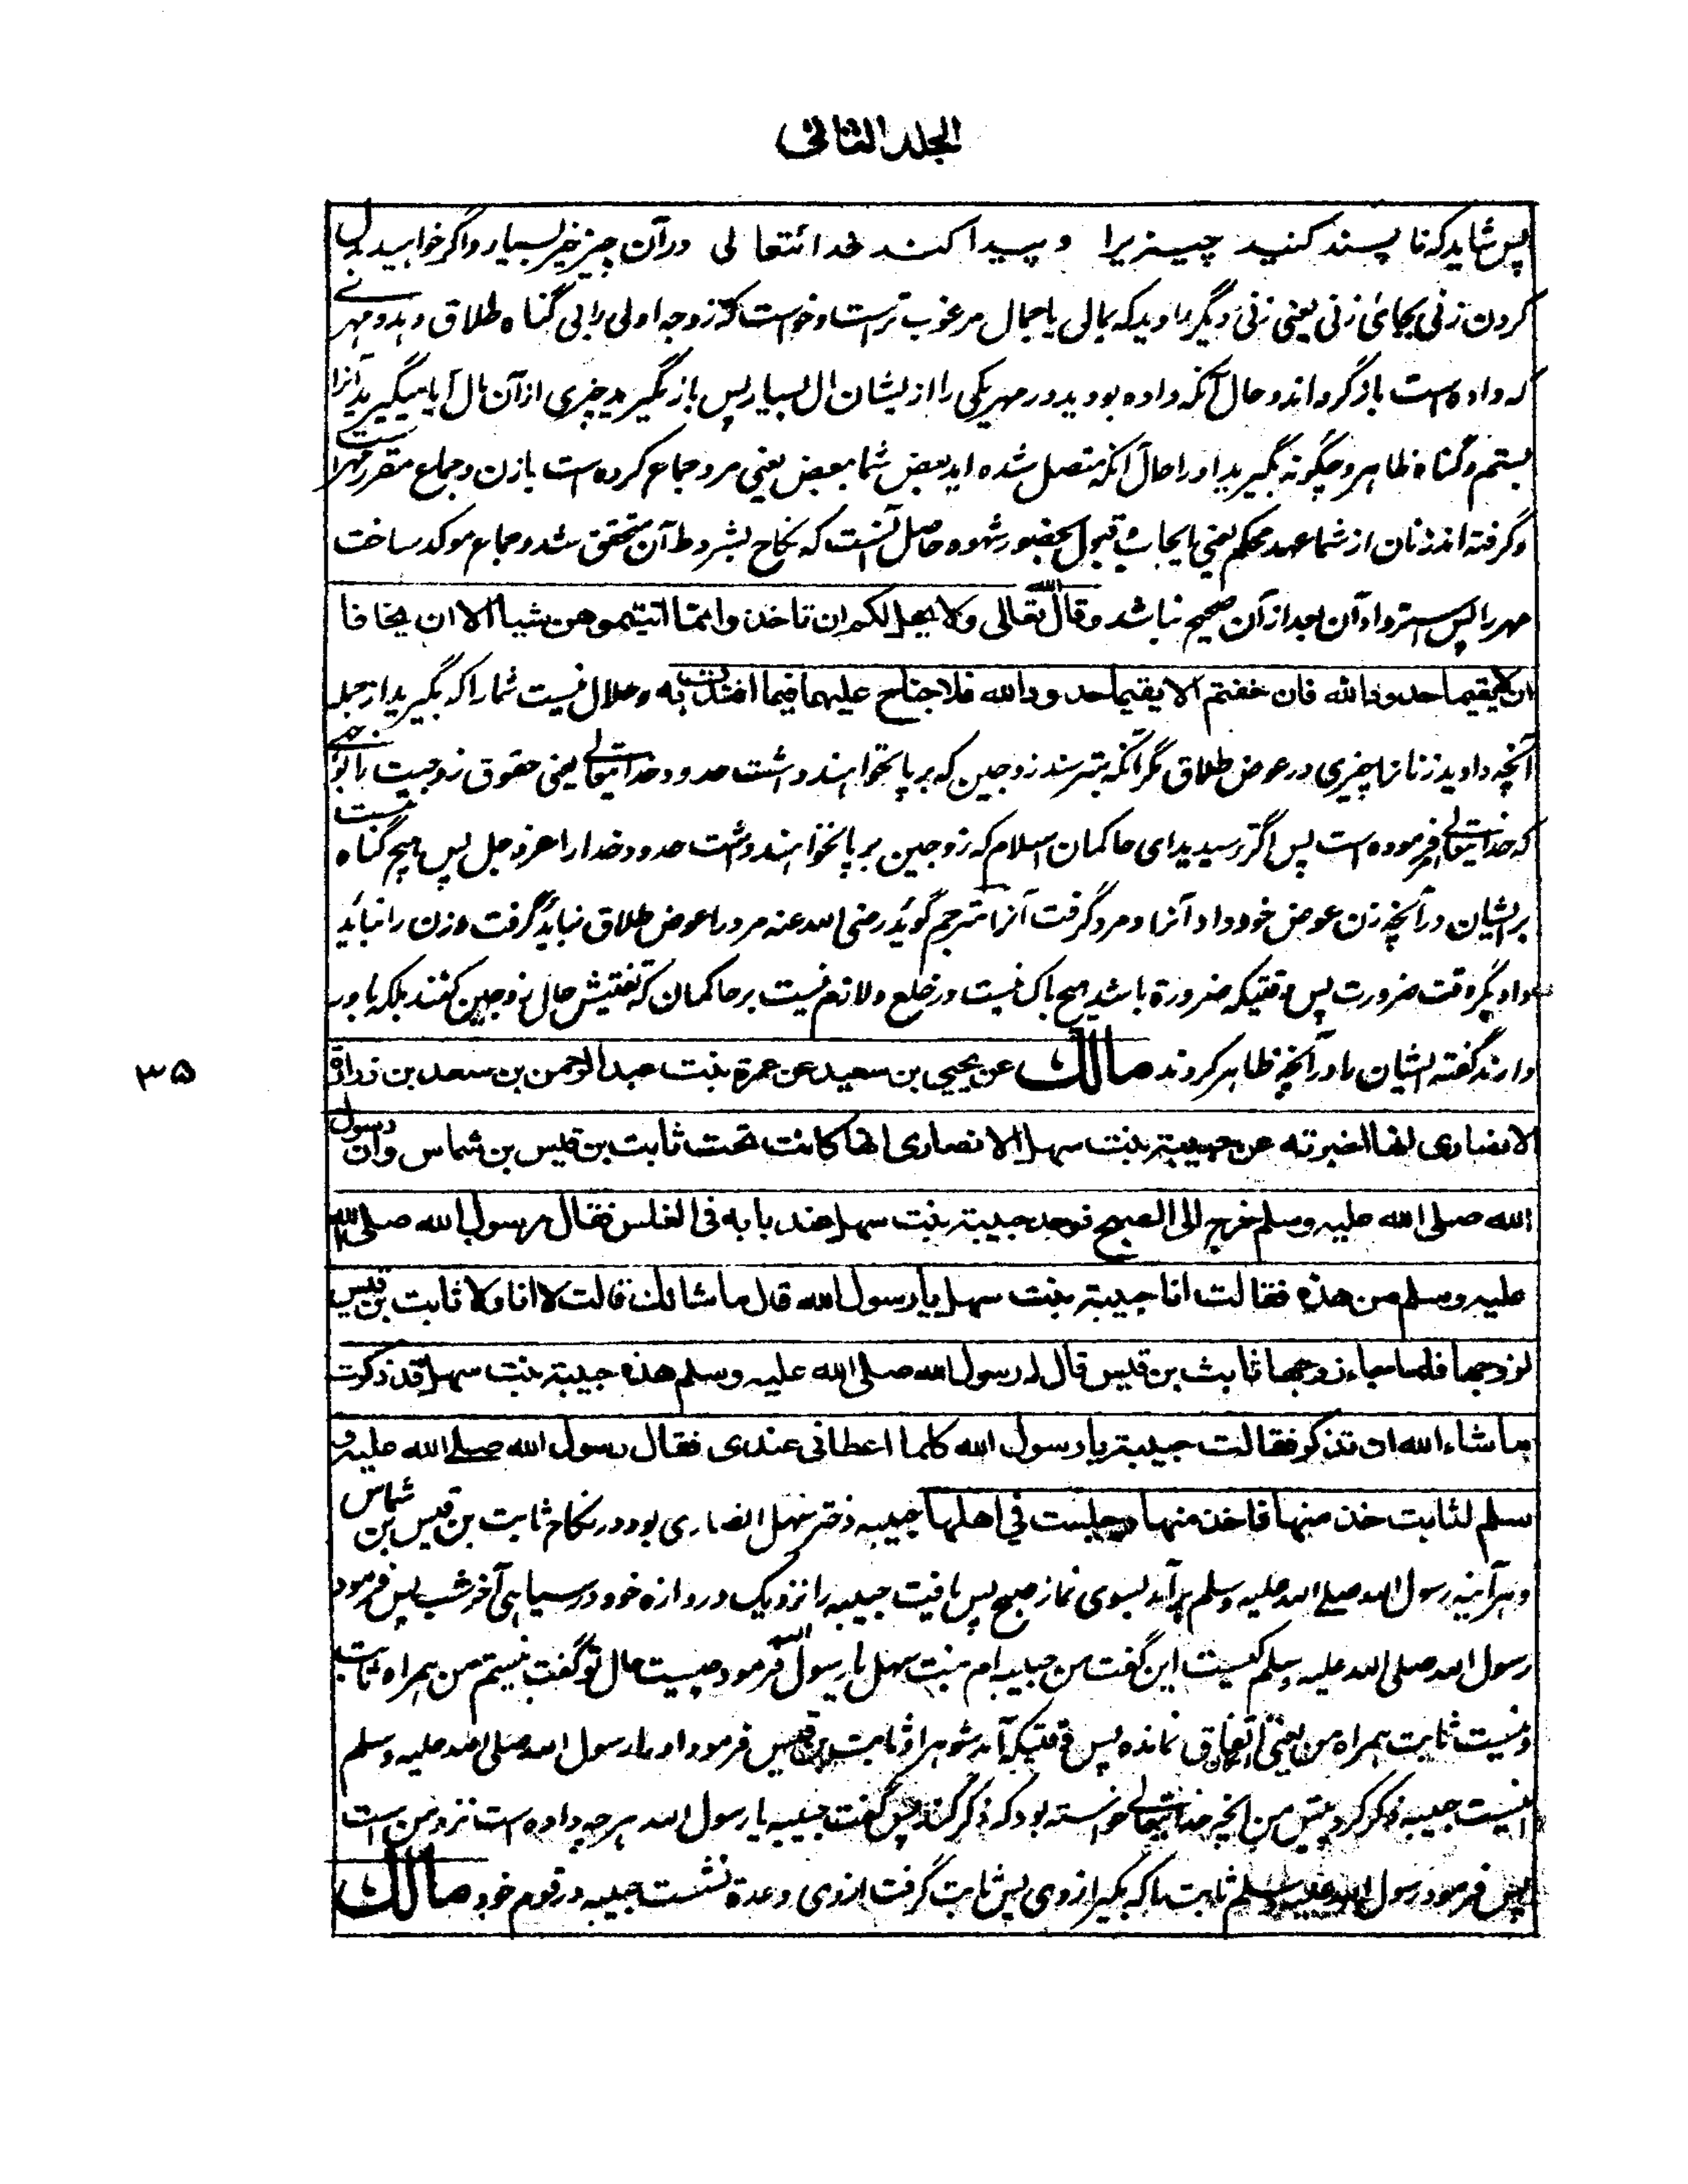 الجلد الثانی
پس شاید که نا پسند کنید چیزیرا و پیدا کند خدائتعالی در آن چیز خیر بسیار و اگر خواهید بدل
کردن زنی بجای زنی یعنی زنی دیگر را دید که بمالی یا جمال مرغوب ترست و خواست که زوجه اولی را بی گناه طلاق دهد و مهری
که داده است باز گرداند و حال آنکه داده بودید در مهر یکی را از ایشان مال بسیار پس باز مگیرید چیزی از آن مال آیا میگیرید آنرا
بستم و گناه ظاهر و چگونه بگیرید او را حال آنکه متصل شده اید بعض شما ببعض یعنی مرد جماع کرده است با زن و جماع مقرر مهر است
و گرفته اند زنان از شما عهد محکم یعنی بایجاب و قبول بحضور شهود حاصل آنست که نکاح بشروط آن متحقق شد و جماع موکد ساخت
مهر را پس استرداد آن بعد از آن صحیح نباشد و قال الله تعالی ولا یحل لکم ان تاخذوا مما اتیتموهن شیا الا ان یخافا
ان لا یقیما حدود الله فان خفتم الا یقیما حدود الله فلا جناح علیهما فیما افتدت به و حلال نیست شما را که بگیرید از جمله
آنچه دادید زنانرا چیزی در عوض طلاق مگر آنکه بترسند زوجین که بر پا نخواهند داشت حدود خدایتعالی یعنی حقوق زوجیت را
که خدایتعالی فرموده است پس اگر ترسیدید ای حاکمان اسلام که زوجین بر پا نخواهند داشت حدود خدا را عز و جل پس هیچ گناه نیست
بر ایشان در آنچه زن عوض خود داد آنرا و مرد گرفت آنرا مترجم گوید رضی الله عنه مرد را عوض طلاق نباید گرفت و زن را نباید
داد مگر وقت ضرورت پس وقتیکه ضرورة باشد هیچ باک نیست در خلع و لازم نیست بر حاکمان که تفتیش حال زوجین کنند بلکه باور
دارند گفته ایشان را در آنچه ظاهر کردند مالك عن یحیی بن سعید عن عمرة بنت عبد الرحمن بن سعد بن زرارة
الانصاری انها اخبرته عن حبیبة بنت سهل الانصاری انها کانت تحت ثابت بن قیس بن شماس وان رسول
الله صلی الله علیه وسلم خرج الی الصبح فوجد حبیبة بنت سهل عند بابه فی الغلس فقال رسول الله صلی الله
علیه وسلم من هذه فقالت انا حبیبة بنت سهل یا رسول الله قال ما شانك قالت لا انا ولا ثابت بن قیس
لزوجها فلما جاء زوجها ثابت بن قیس قال له رسول الله صلی الله علیه وسلم هذه حبیبة بنت سهل قد ذکرت
ما شاء الله ان تذکر فقالت حبیبة یا رسول الله کلما اعطانی عندی فقال رسول الله صلی الله علیه و
سلم لثابت خذ منها فاخذ منها وجلست فی اهلها حبیبه دختر سهل انصاری بود در نکاح ثابت بن قیس بن شماس
و هر آئینه رسول الله صلی الله علیه وسلم بر آمد بسوی نماز صبح پس یافت حبیبه را نزدیک دروازه خود در سیاهی آخر شب پس فرمود
رسول الله صلی الله علیه وسلم کیست این گفت من حبیبه ام بنت سهل یا رسول الله فرمود چیست حال تو گفت نیستم من همراه ثابت
و نیست ثابت همراه من یعنی اتفاق نمانده پس وقتیکه آمد شوهر او ثابت بن قیس فرمود او را رسول الله صلی الله علیه وسلم
اینست حبیبه ذکر کرد پیش من آنچه خدایتعالی خواسته بود که ذکر کند پس گفت حبیبه یا رسول الله هر چه داده است نزد من است
پس فرمود رسول الله صلی الله علیه وسلم ثابت را که بگیر از وی پس ثابت گرفت از وی و عدة نشست حبیبه در قوم خود مالك
۳۵